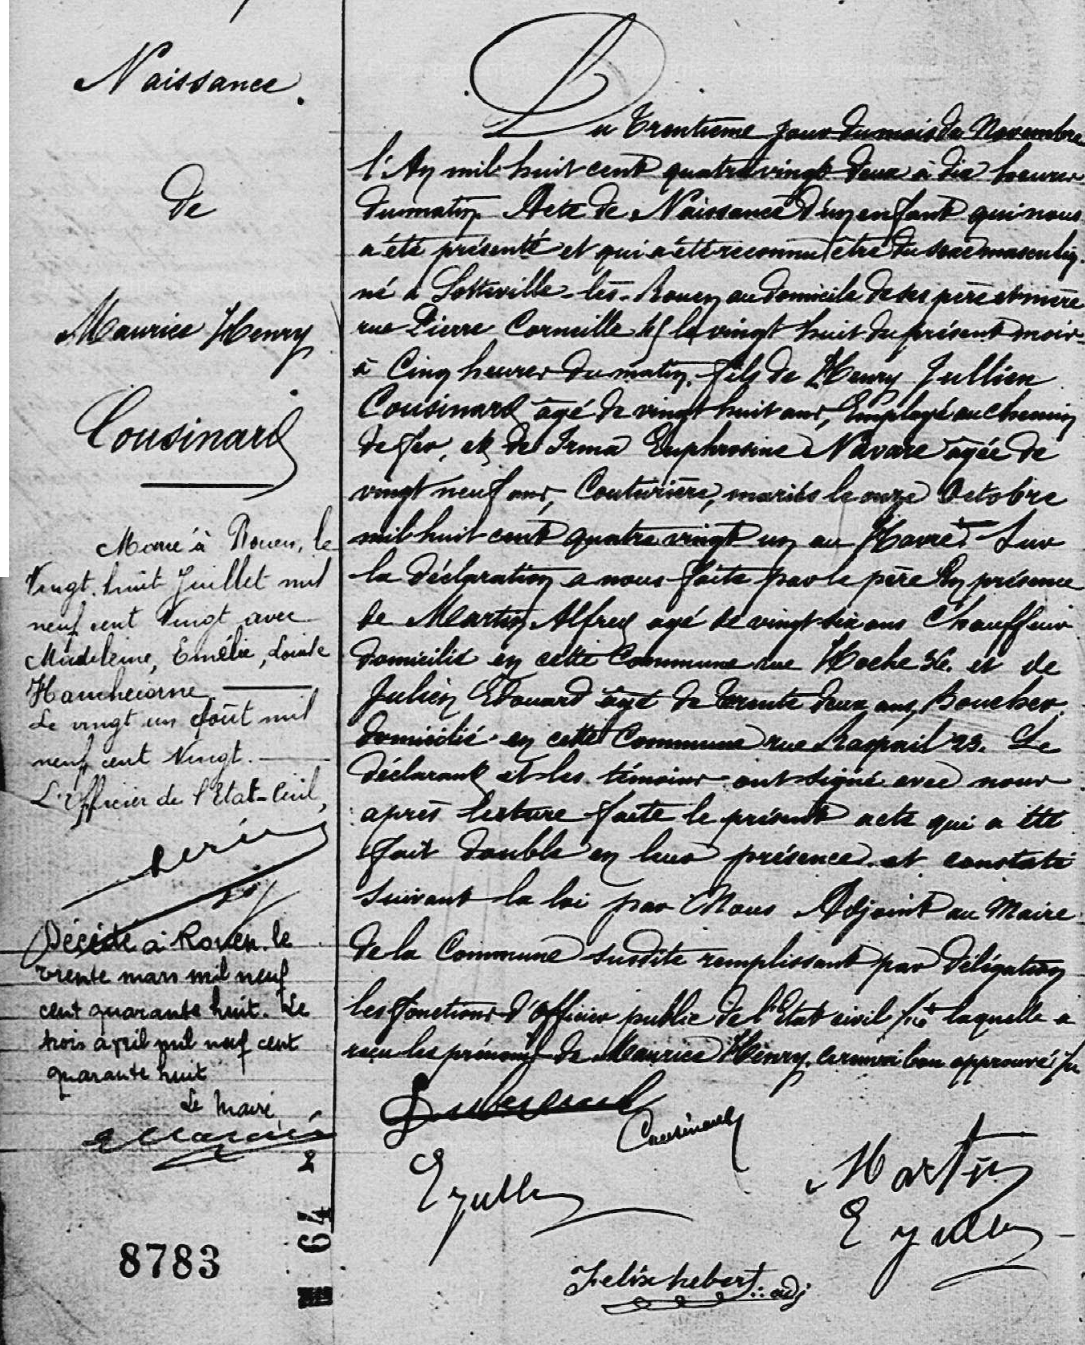 Naissance.
de
Maurice Henry
Cousinard
Marié à Rouen, le
Vingt huit Juillet mil
neuf cent Vingt avec
Madeleine, Emélie, Louise
Hauchecorne
Le vingt un Août mil
neuf cent Vingt.
L'Officier de l'Etat-Civil,
Décédé à Rouen le
trente mars mil neuf
cent quarante huit. Le
trois avril mil neuf cent
quarante huit
Le Maire
8783
64 2
Du trentième jour du mois de Novembre
l'An mil huit cent quatre vingt deux à dix heures
du matin Acte de Naissance d'un enfant qui nous
a été présenté et qui a été reconnu être du sexe masculin.
né à Sotteville-lès-Rouen au domicile de ses père et mère
rue Pierre Corneille le vingt huit du présent mois
à Cinq heures du matin. fils de Henry Jullien
Cousinard âgé de vingt huit ans, Employé au Chemin
de fer, et de Irma Euphrosine Navare âgée de
vingt neuf ans, Couturière, mariés le onze Octobre
mil huit cent quatre vingt un au Havre. Sur
la déclaration a nous faite par le père En présence
de Martin Alfred agé de vingt six ans Chauffeur
domicilié en cette Commune rue Hoche 36. et de
Julien Edouard âgé de trente deux ans, Boucher
domicilié en cette Commune rue Raspail 23. Le
déclarant et les témoins ont signé avec nous
après lecture faite le présent acte qui a été
fait double en leur présence et constaté
suivant la loi par Nous Adjoint au Maire
de la Commune susdite remplissant par délégation
les fonctions d'Officier public de l'Etat civil laquelle a
reçu les prénoms de Maurice Henry. bon approuvé
Cousinard
Martin
E Jullien
E Jullien
Felix hebert adj